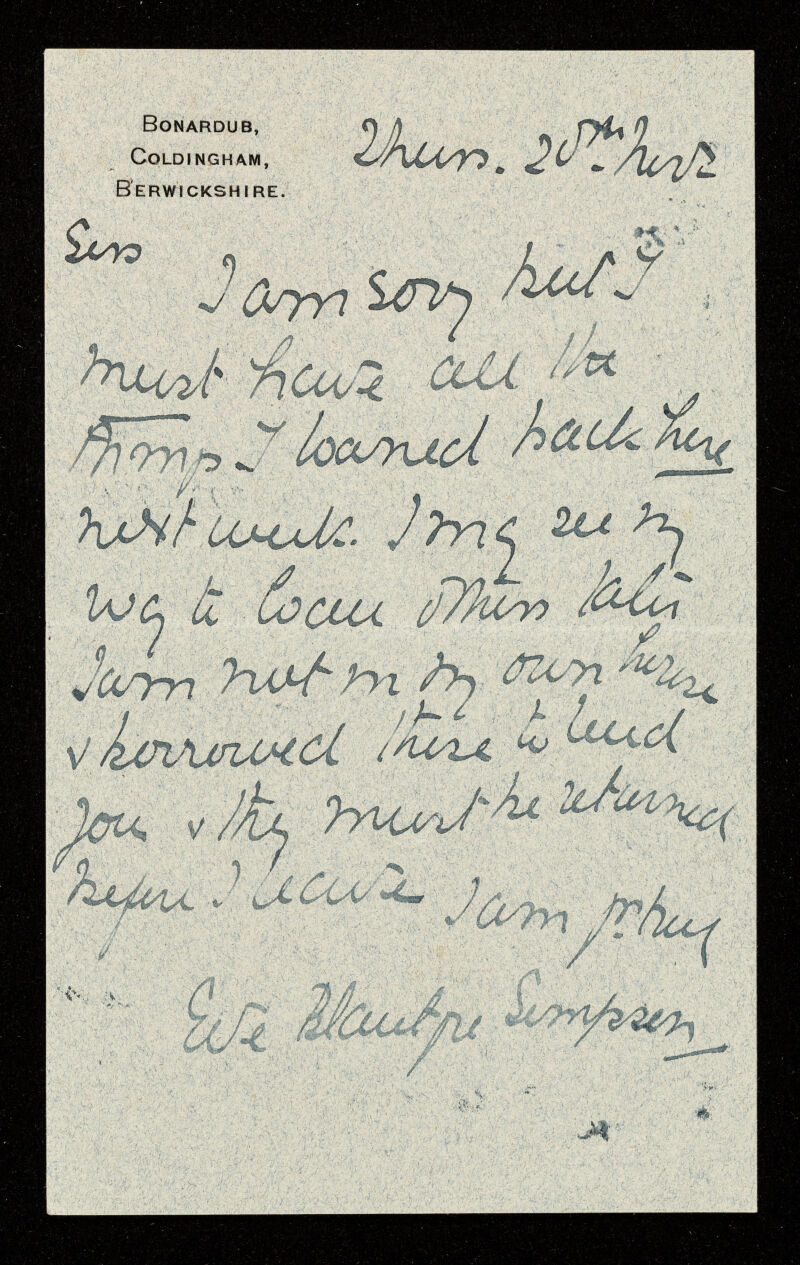 BONARDUB,
COLDINGHAM,
BERWICKSHIRE.
Thurs. 20th Novr
Sirs
I am sorry but I
must have all the
things I loaned back here
next week. I may see my
way to loan others later
I am not in my own house
& borrowed these to lend
you & they must be returned
before I leave
I am yrs truly
Eve Blantyre Simpson